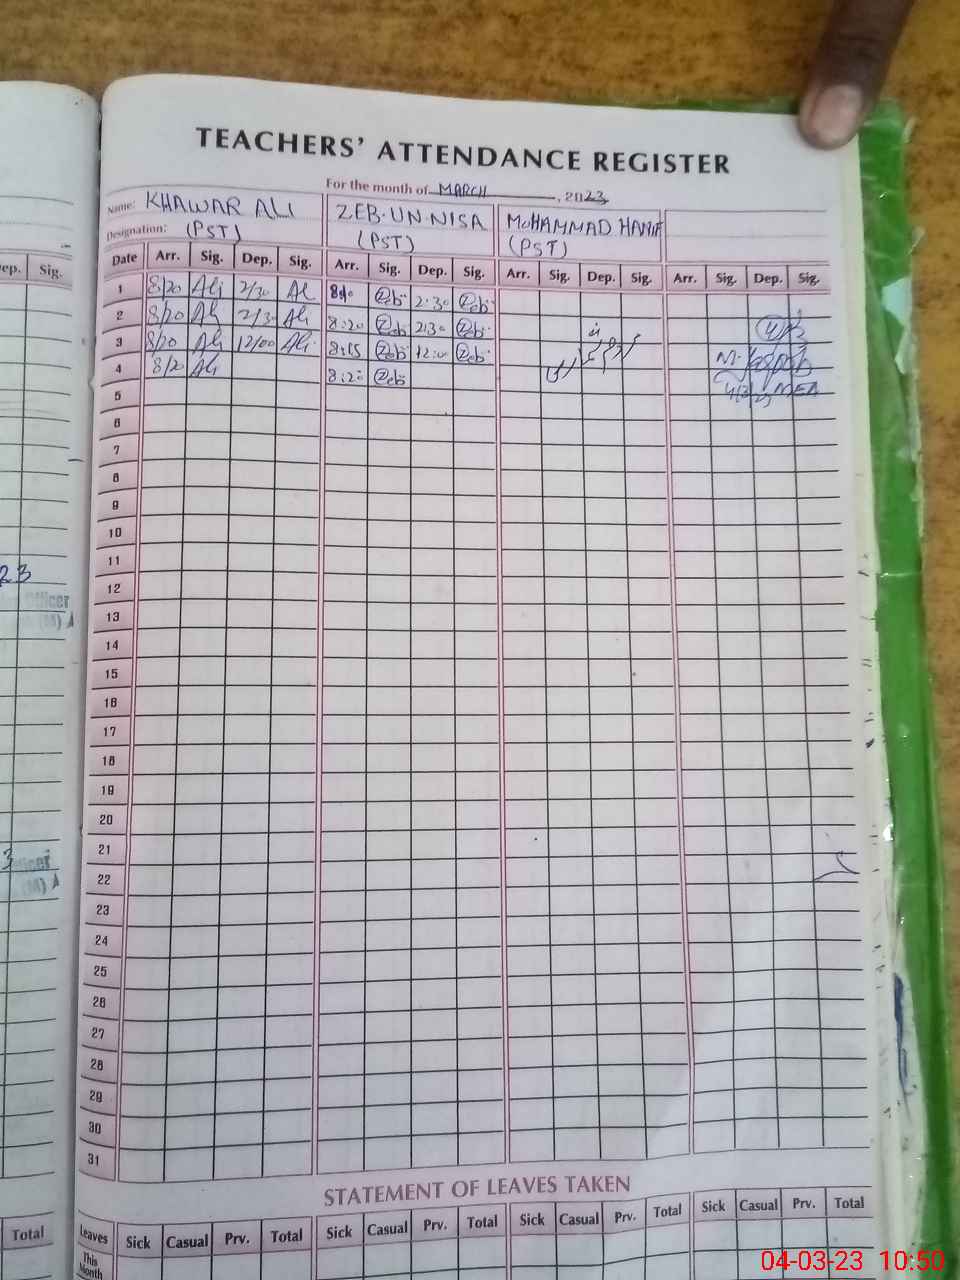 TEACHERS' ATTENDANCE REGISTER
For the month of MARCH, 2023
Name: KHAWAR ALI ZEB-UN-NISA MOHAMMAD HANIF
Designation: (PST) (PST) (PST)
Date Arr. Sig. Dep. Sig. Arr. Sig. Dep. Sig. Arr. Sig. Dep. Sig. Arr. Sig. Dep. Sig.
1 8/20 Ali 2/30 Al Zeb 2:30 Zeb
2 8/20 Ali 2/30 Ali 8:20 Zeb 2:30 Zeb
3 8/20 Ali 12/00 Ali 8:15 Zeb 12:00 Zeb
4 8/20 Ali 8:20 Zeb
5
6
7
8
9
10
11
12
13
14
15
16
17
18
19
20
21
22
23
24
25
26
27
28
29
30
31
STATEMENT OF LEAVES TAKEN
Leaves Sick Casual Prv. Total Sick Casual Prv. Total Sick Casual Prv. Total Sick Casual Prv. Total
This
Month
ep. Sig.
23
Officer
(M)
3
(M)
Total
04-03-23 10:50